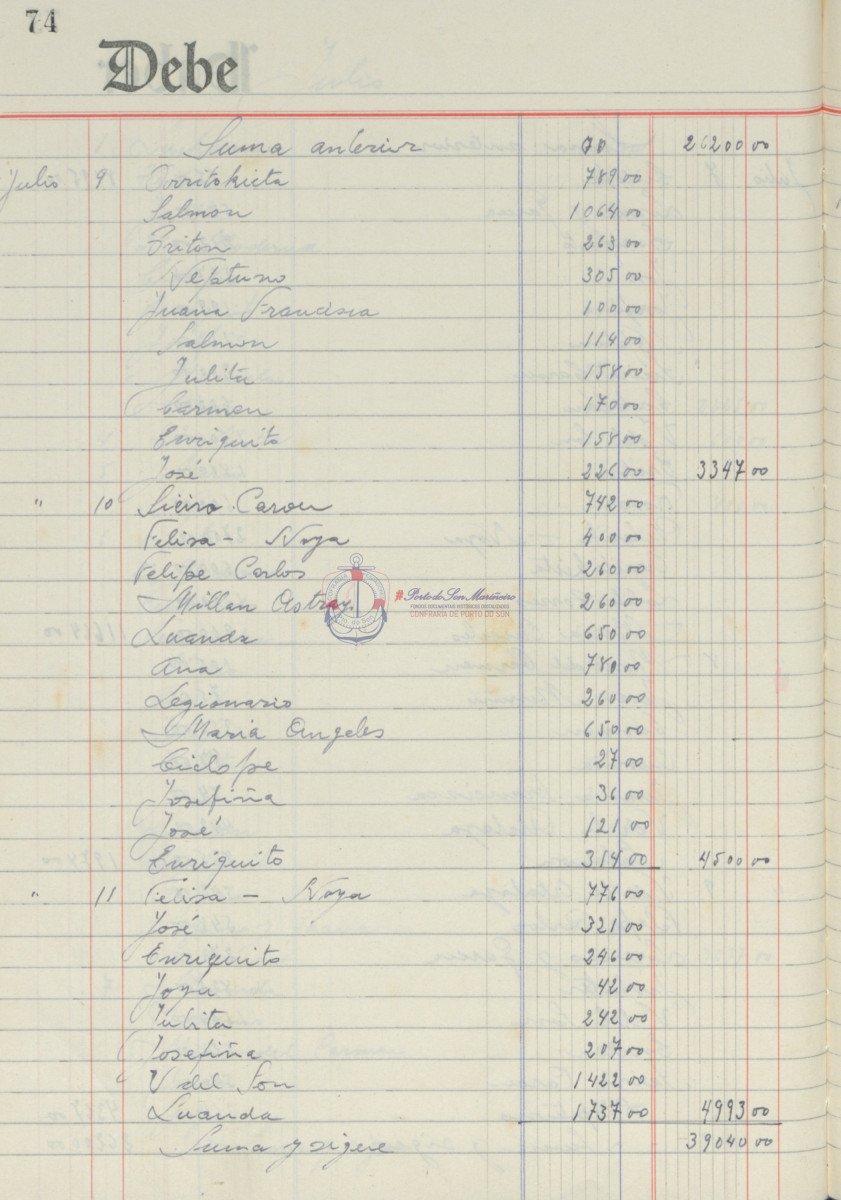 74
Debe
Suma anterior 70 26200 00
Julio 9 Orritokieta 789 00
Salmon 1064 00
Triton 263 00
Neptuno 305 00
Juana Francisca 100 00
Salmon 114 00
Julita 158 00
Carmen 170 00
Enriquito 158 00
José 226 00 3347 00
" 10 Sieiro Carou 742 00
Felisa - Noya 400 00
Felipe Carlos 260 00
Millan Astray 260 00
Luanda 650 00
Ana 780 00
Legionario 260 00
Maria Angeles 650 00
Ciclope 27 00
Josefiña 36 00
José 121 00
Enriquito 314 00 4500 00
" 11 Felisa - Noya 776 00
José 321 00
Enriquito 246 00
Joya 42 00
Julita 242 00
Josefiña 207 00
V del Son 1422 00
Luanda 1737 00 4993 00
Suma y sigue 39040 00
#PortodoSonMariñeiro
FONDOS DOCUMENTAIS HISTÓRICOS DIXITALIZADOS
CONFRARÍA DE PORTO DO SON